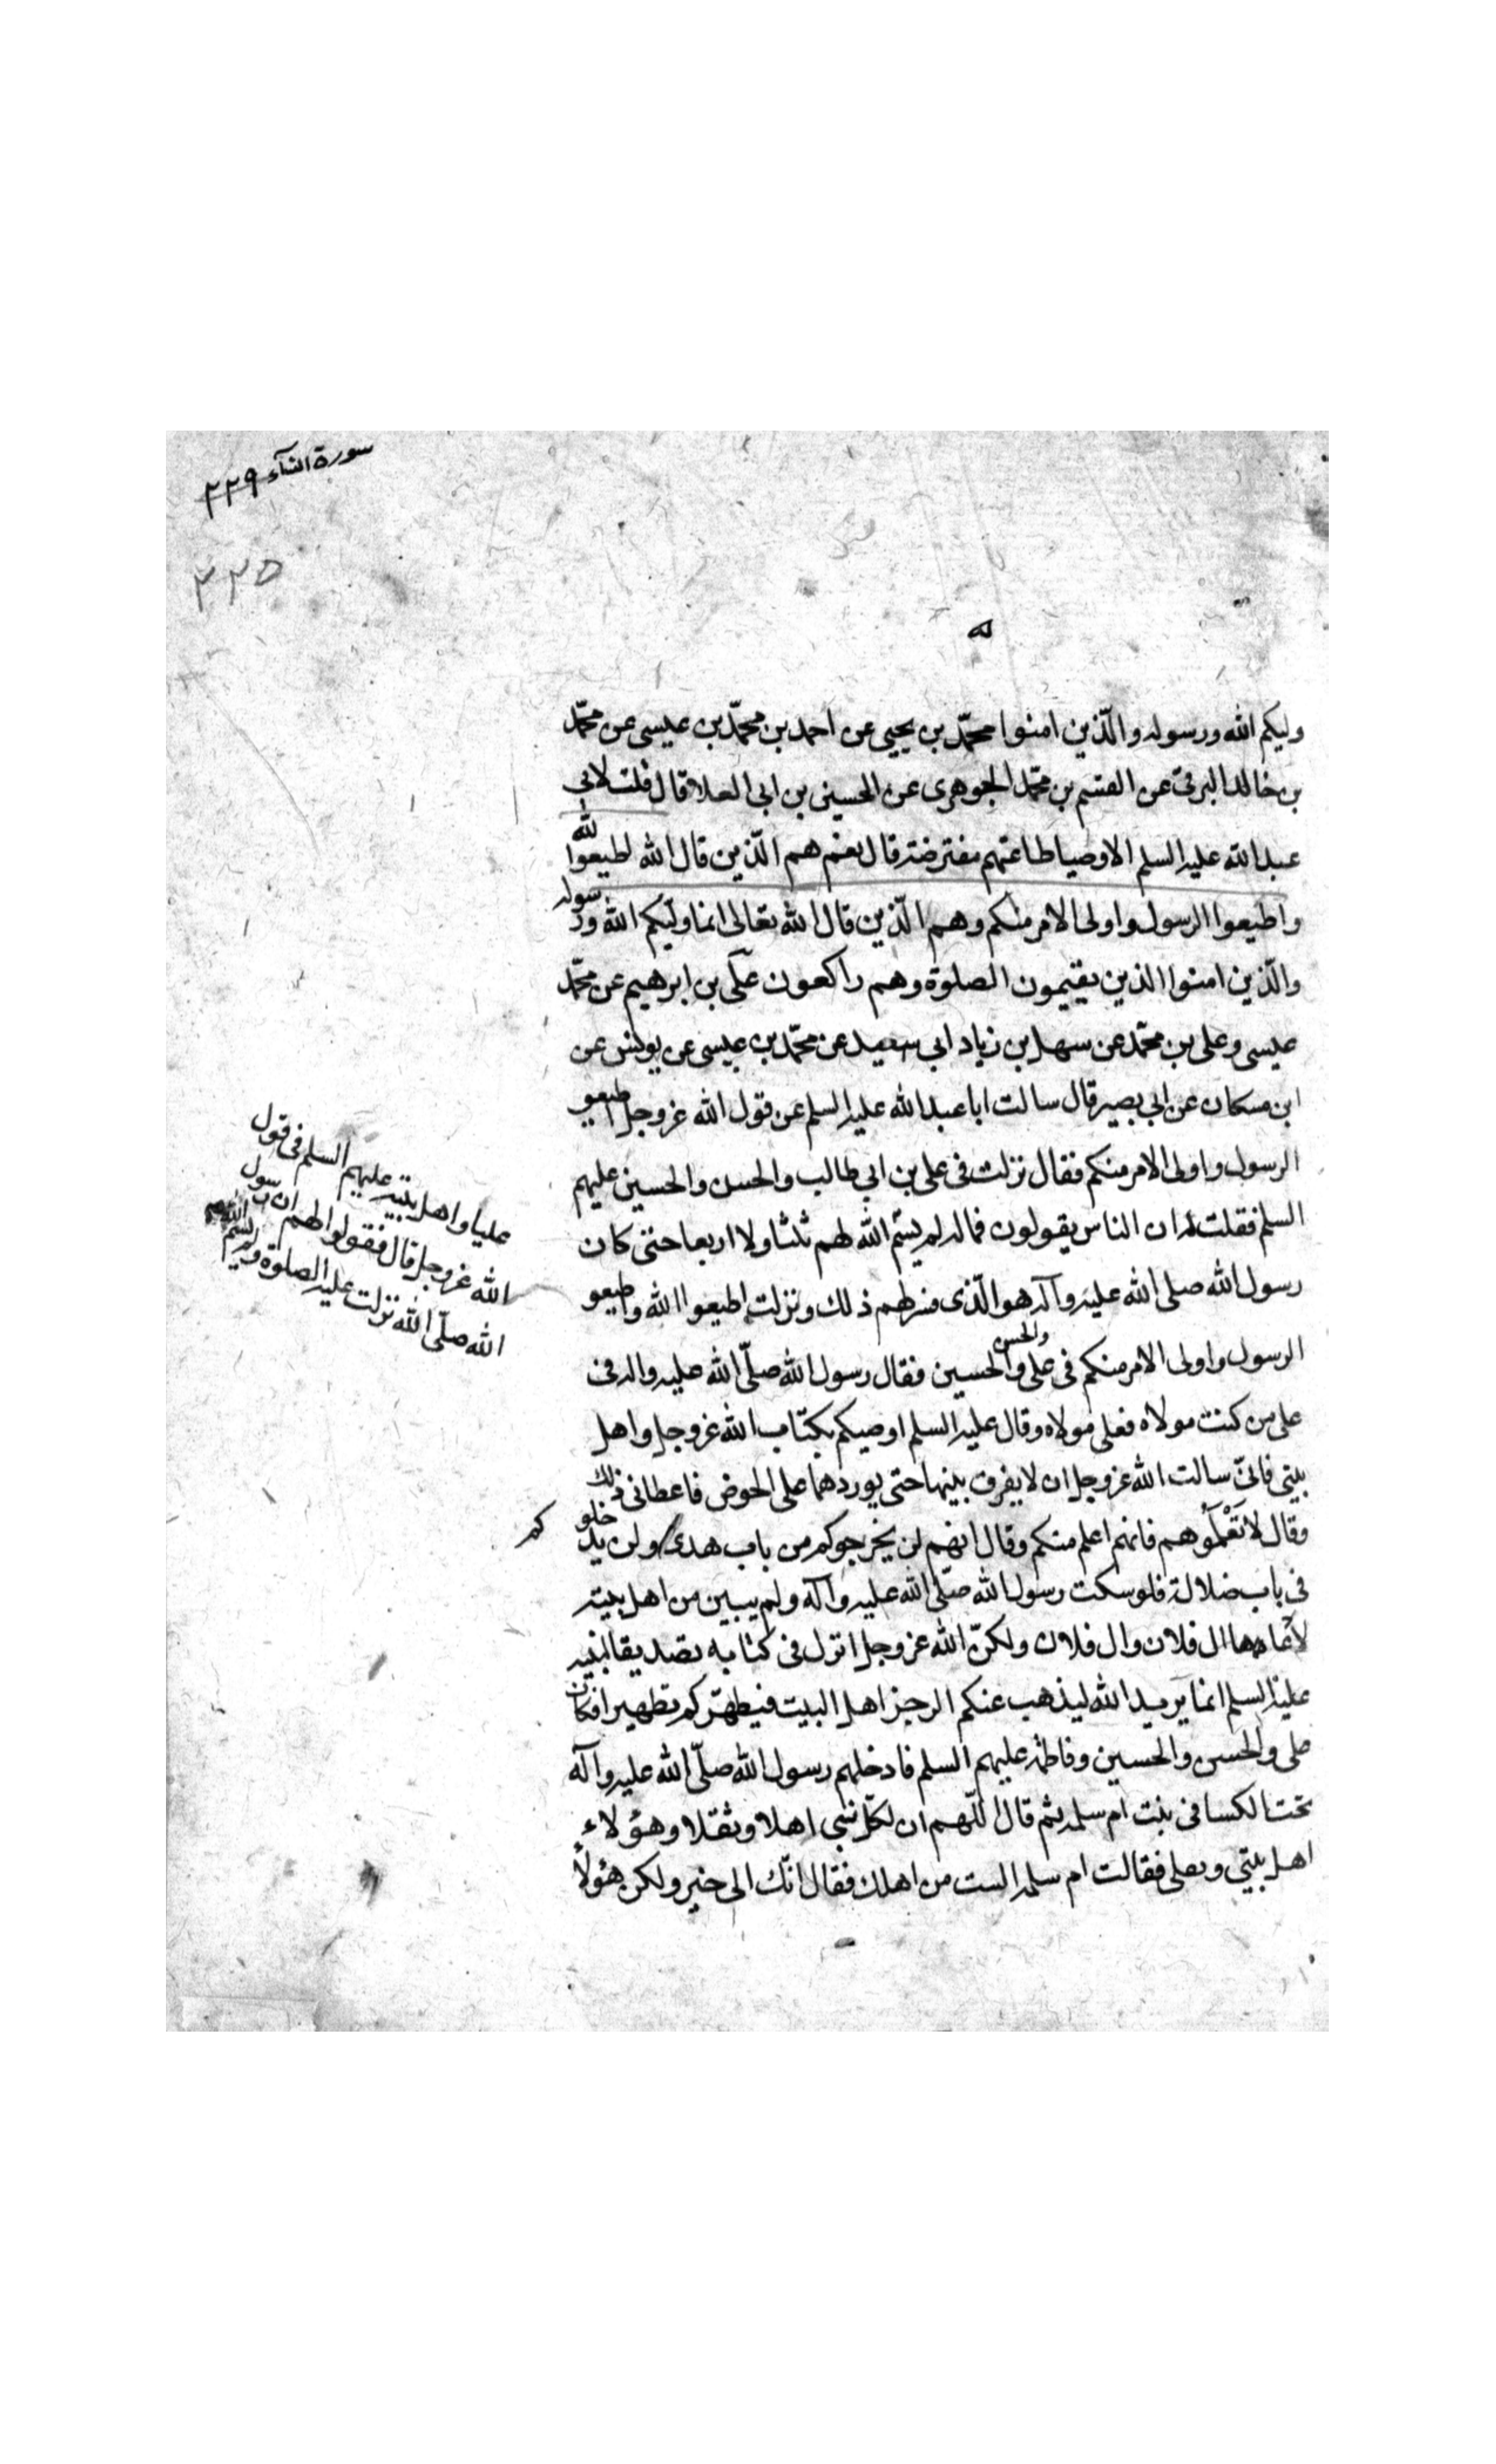 سورة النسآء ٢٢٩
٢٢٥
وليكم الله ورسوله والّذين امنوا محمّد بن يحيى عن احمد بن محمّد بن عيسى عن محمّد
بن خالد البرقى عن القسم بن محمّد الجوهرى عن الحسين بن ابى العلا قال قلت لابى
عبد الله عليه السلم الاوصيا طاعتهم مفترضة قال نعم هم الّذين قال الله اطيعوا الله
واطيعوا الرسول واولى الامر منكم وهم الّذين قال الله تعالى انما وليّكم الله ورسوله
والّذين امنوا الذين يقيمون الصلوة وهم راكعون علىّ بن ابرهيم عن محمّد
عيسى وعلى بن محمّد عن سهل بن زياد ابى سعيد عن محمّد بن عيسى عن يونس عن
ابن مسكان عن ابى بصير قال سالت ابا عبد الله عليه السلم عن قول الله عزوجل اطيعو
الرسول واولى الامر منكم فقال نزلت فى على بن ابى طالب والحسن والحسين عليهم
السلم فقلت له ان الناس يقولون فما له لم يسمّ
عليا واهل بيته عليهم السلم فى قول
الله عزوجل قال فقولوا لهم ان رسول
الله صلّى الله نزلت عليه الصلوة ولم يسم
الله لهم ثلثا ولا اربعا حتى كان
رسول الله صلى الله عليه وآله هو الّذى فسر لهم ذلك ونزلت اطيعوا الله واطيعو
الرسول واولى الامر منكم فى على والحسن والحسين فقال رسول الله صلّى الله عليه واله فى
على من كنت مولاه فعلى مولاه وقال عليه السلم اوصيكم بكتاب الله عزوجل واهل
بيتى فانىّ سالت الله عزوجل ان لا يفرق بينهما حتى يوردهما على الحوض فاعطانى ذلك
وقال لا تعلموهم فانهم اعلم منكم وقال انهم لن يخرجوكم من باب هدى ولن يدخلوكم
فى باب ضلالة فلو سكت رسول الله صلّى الله عليه وآله ولم يبين من اهل بيته
لادّعاها ال فلان وال فلان ولكنّ الله عزوجل انزل فى كتابه تصديقا لنبيه
عليه السلم انما يريد الله ليذهب عنكم الرجز اهل البيت فيطهّركم تطهيرا فكان
على والحسن والحسين وفاطمة عليهم السلم فادخلهم رسول الله صلّى الله عليه وآله
تحت الكسا فى بيت ام سلمه ثم قال اللّهم ان لكل نبى اهلا وثقلا وهؤلاء
اهل بيتى وثقلى فقالت ام سلمه الست من اهلك فقال انّك الى خير ولكن هؤلاء